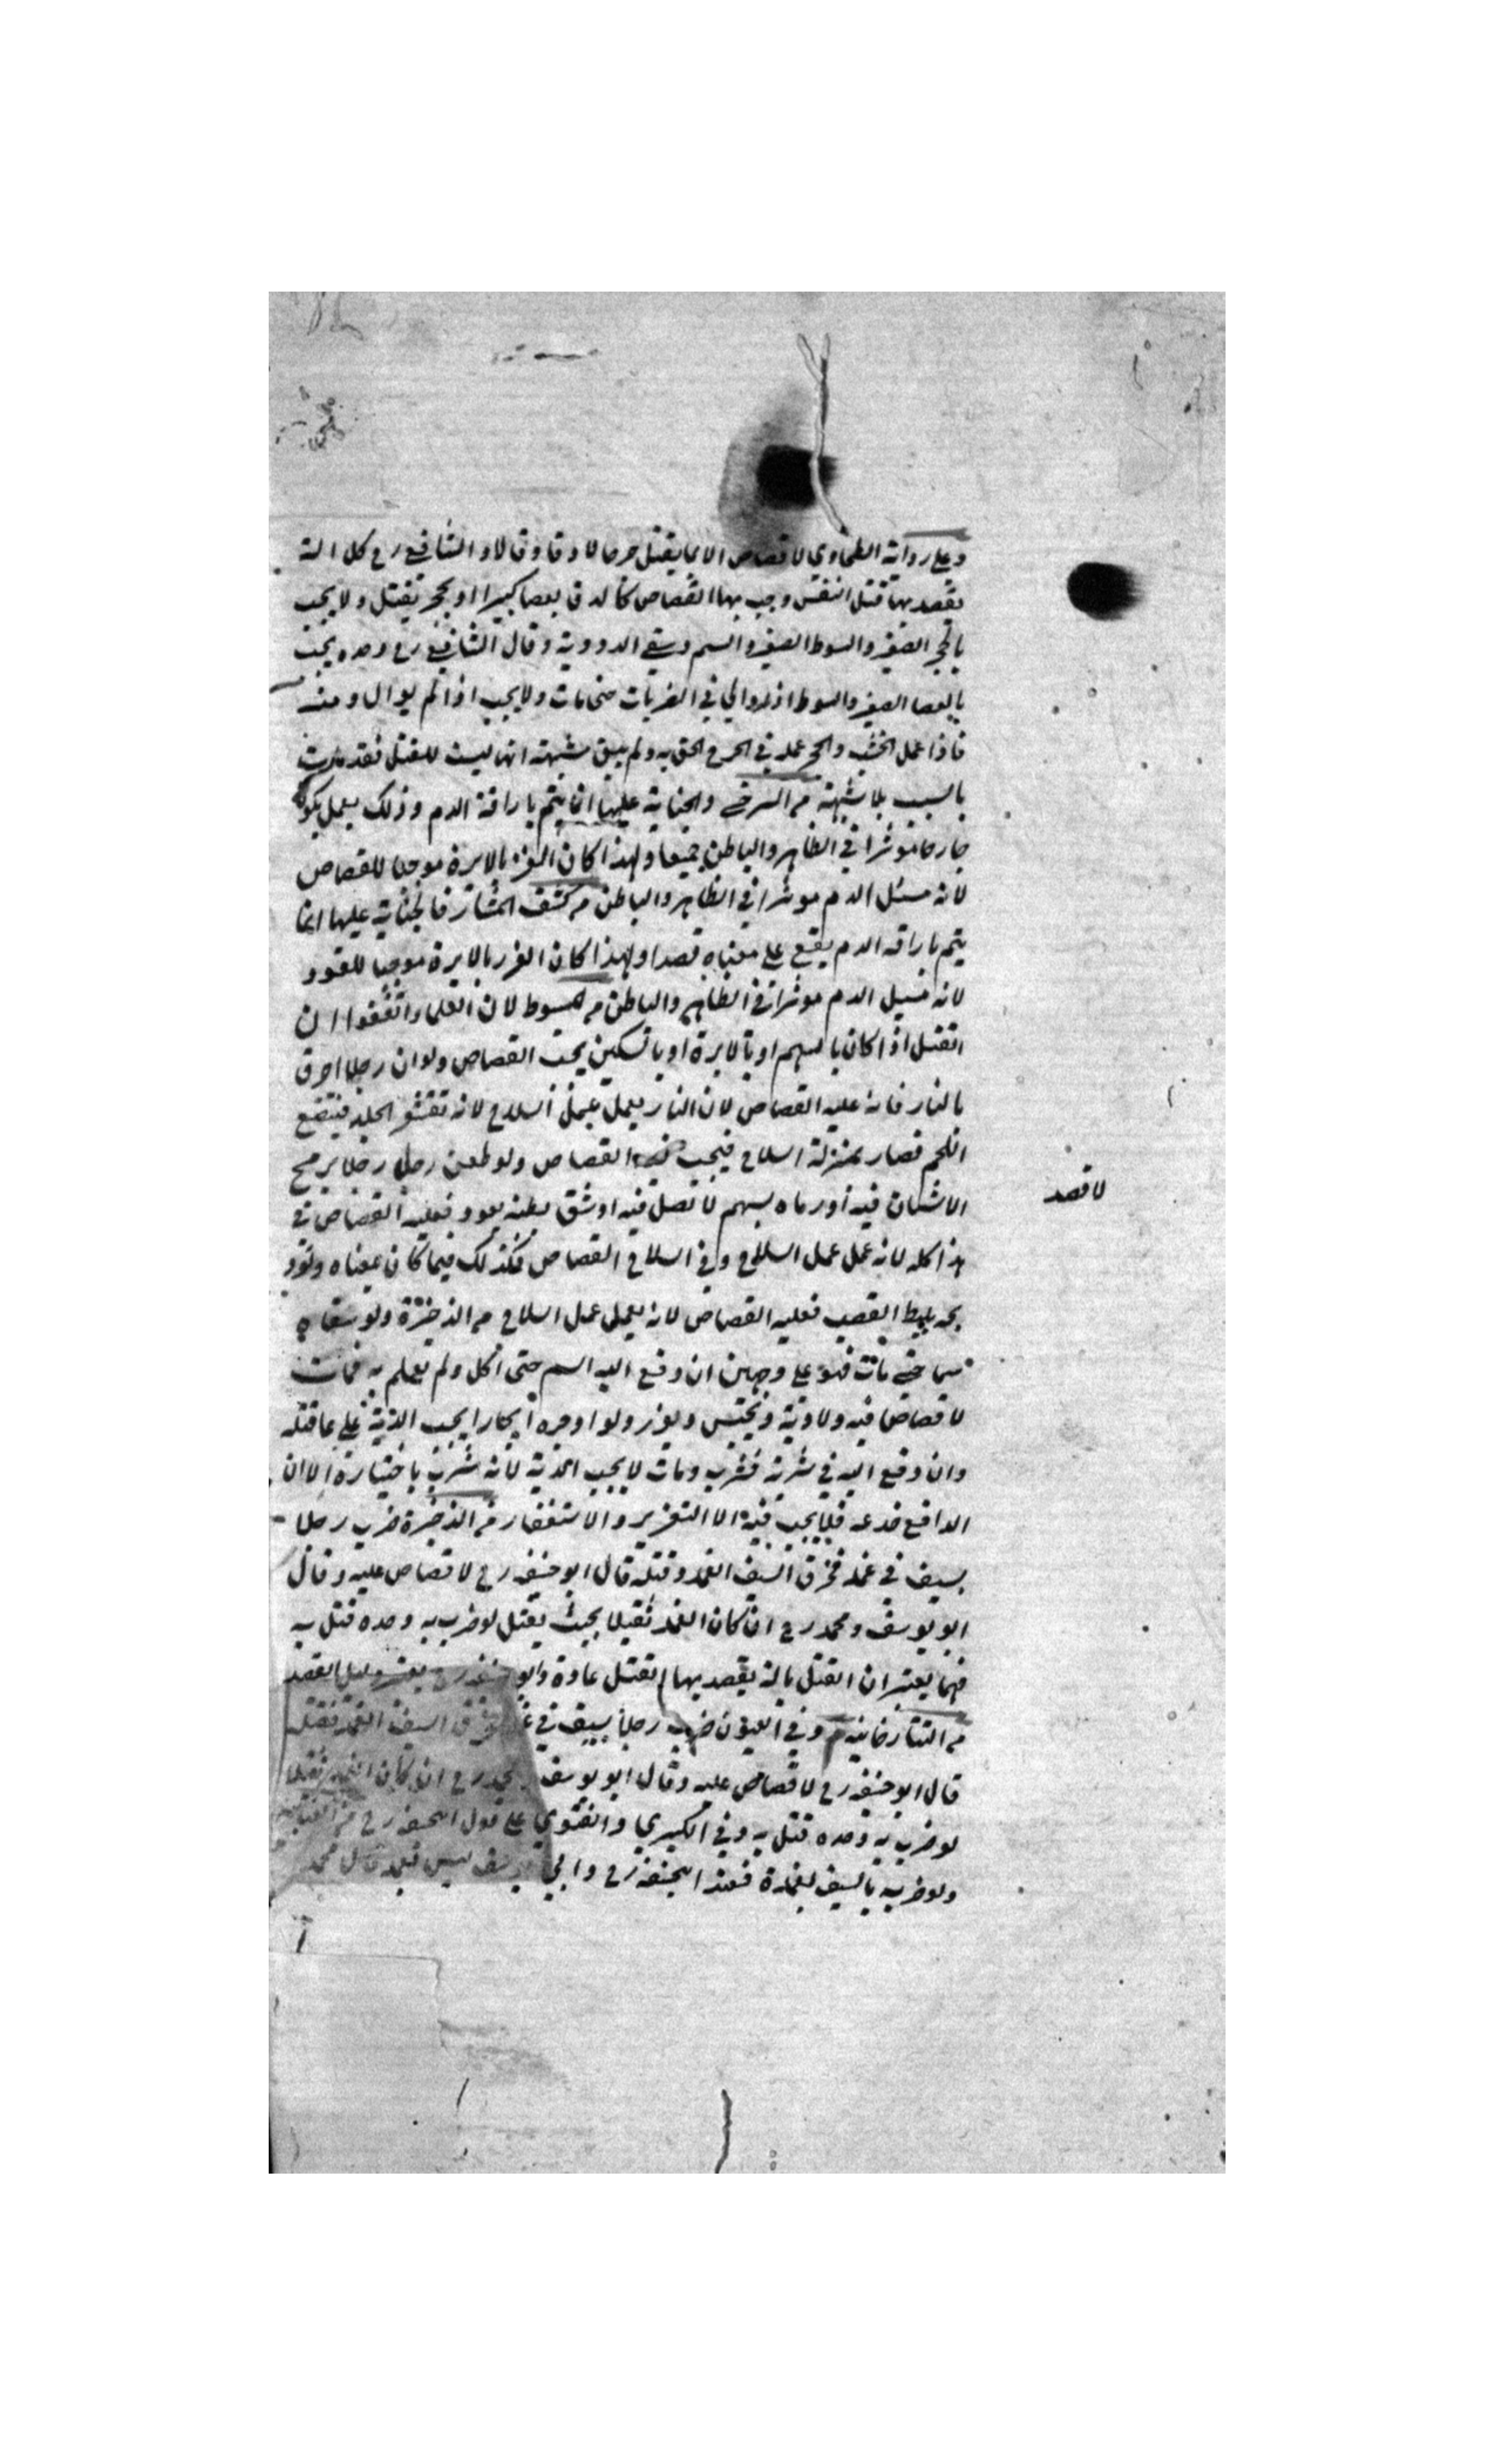 وعلى رواية الطحاوي لا قصاص الا بما يقتل جرحا لا دقا وقالا و الشافعي رح كل الة
يقصد بها قتل النفس وجب بها القصاص كما لو دق بعصا كبيرا او بحجر يقتل ولا يجب
بالحجر الصغير والسوط الصغير والسم وسقي الدووية وقال الشافعي رح وحده يجب
بالعصا الصغير والسوط اذا والي في الضربات حتى مات ولا يجب اذا لم يوال ومن
فاذا عمل الخشب والحجر عمله في الجرح الحق به ولم يبق شبهة انها ليست للقتل فقد
بالسبب بلا شبهة من السرخسي والجناية عليها انما يتم باراقة الدم وذلك بعمل يكون
جارحا موثرا في الظاهر والباطن جميعا ولهذا كان الغرز بالابرة موجبا للقصاص
لانه مسيل الدم موثرا في الظاهر والباطن من كشف المشار فالجناية عليها انما
يتم باراقه الدم يقع على معناه قصدا ولهذا كان الغرز بالابرة موجبا للقود
لانه مسيل الدم موثرا في الظاهر والباطن من المبسوط لان العلماء اتفقوا ان
القتل اذا كان بالسهم او بالابرة او بالسكين يجب القصاص ولو ان رجلا احرق
بالنار فانه عليه القصاص لان النار يعمل عمل السلاح لانه تقشر الجلد فيقطع
اللحم فصار بمنزلة السلاح فيجب القصاص ولو طعن رجل رجلا برمح
الاسنان فيه او رماه بسهم لا نصل فيه او شق بطنه بعود فعليه القصاص في
هذا كله لانه عمل عمل السلاح وفي السلاح القصاص فكذلك فيما كان بمعناه ولو
بليط القصب فعليه القصاص لانه يعمل عمل السلاح من الذخيرة ولو سقاه
سما حتى مات فهو على وجهين ان دفع اليه السم حتى اكل ولم يعلم به فمات
لا قصاص فيه ولا دية ويحبس ويعزر ولو اوجره ايجارا يجب الدية على عاقلته
وان دفع اليه في شربة فشرب ومات لا يجب الدية لانه شرب باختياره الا ان
الدافع خدعه فلا يجب فيه الا التعزير والاستغفار من الذخيرة ضرب رجلا
بسيف في غمد فخرق السيف الغمد وقتله قال ابو حنيفه رح لا قصاص عليه وقال
ابو يوسف ومحمد رح ان كان الغمد ثقيلا بحيث يقتل لو ضرب به وحده قتل به
فهما يعتبران القتل بالة يقصد بها القتل عادة وابو حنيفه رح يعتبر القصد
من التتارخانية وفي العيون ضرب رجلا بسيف في غمد فخرق السيف الغمد فقتله
قال ابو حنيفه رح لا قصاص عليه وقال ابو يوسف ومحمد رح ان كان الغمد ثقيلا
لو ضرب به وحده قتل به وفي الكبيري والفتوى على قول ابيحنيفه رح من
ولو ضربه بالسيف بغمده فعند ابيحنيفه رح وابي يوسف ليس فيه قال محمد
لا قصد